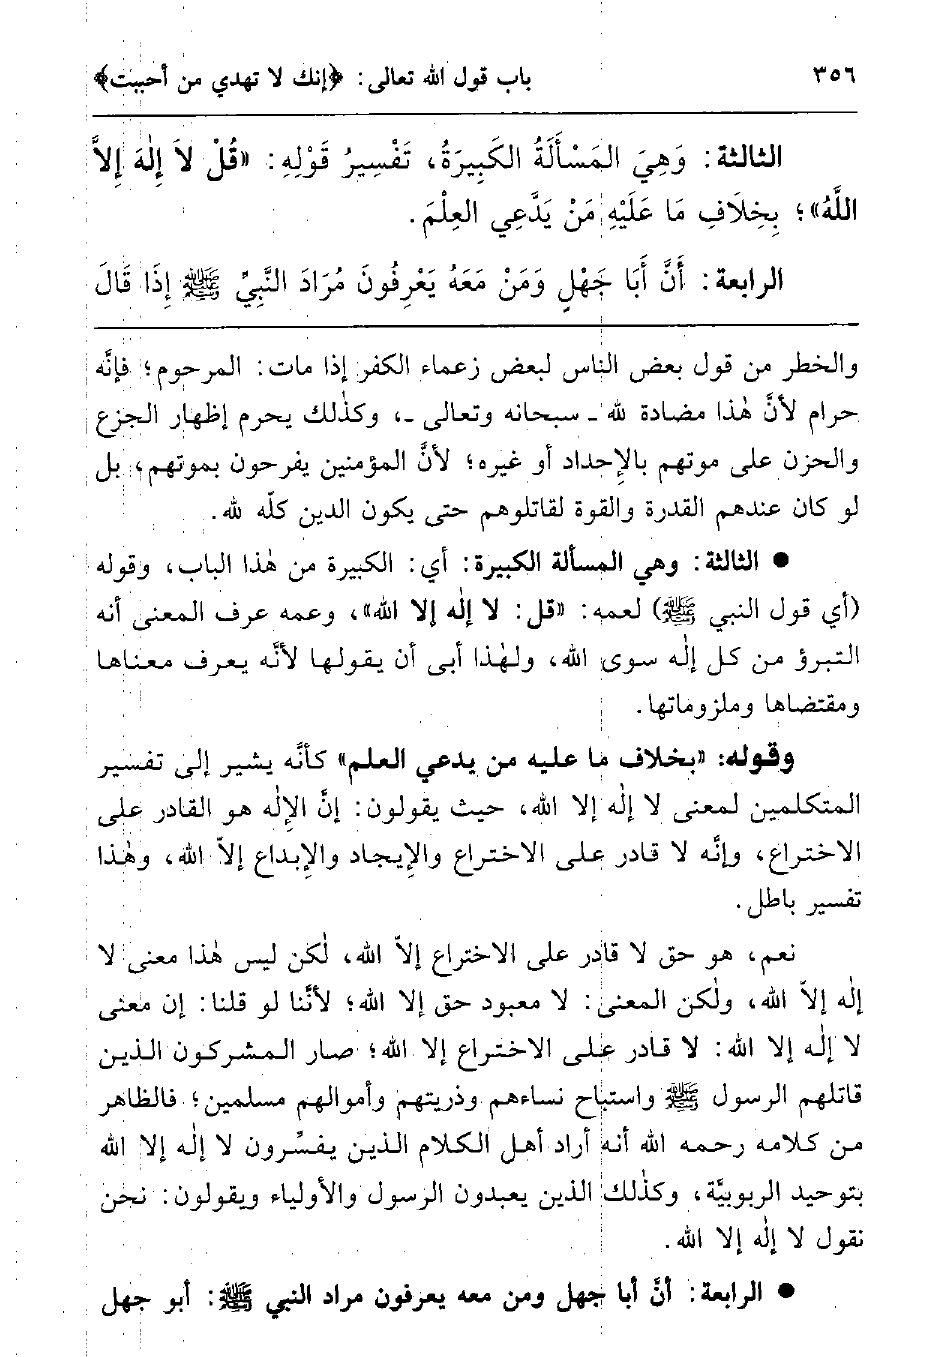 ٣٥٦ باب قول الله تعالى: ﴿إنك لا تهدي من أحببت﴾
الثالثة: وَهِيَ المَسْأَلَةُ الكَبِيرَةُ، تَفْسِيرُ قَوْلِهِ: «قُلْ لاَ إِلٰهَ إِلاَّ
اللَّهُ»؛ بِخِلَافِ مَا عَلَيْهِ مَنْ يَدَّعِي العِلْمَ.
الرابعة: أَنَّ أَبَا جَهْلٍ وَمَنْ مَعَهُ يَعْرِفُونَ مُرَادَ النَّبِيِّ ﷺ إِذَا قَالَ
والخطر من قول بعض الناس لبعض زعماء الكفر إذا مات: المرحوم؛ فإنَّه
حرام لأنَّ هٰذا مضادة لله ـ سبحانه وتعالى ـ، وكذٰلك يحرم إظهار الجزع
والحزن على موتهم بالإحداد أو غيره؛ لأنَّ المؤمنين يفرحون بموتهم، بل
لو كان عندهم القدرة والقوة لقاتلوهم حتى يكون الدين كلّه لله.
● الثالثة: وهي المسألة الكبيرة: أي: الكبيرة من هٰذا الباب، وقوله
(أي قول النبي ﷺ) لعمه: «قل: لا إلٰه إلا الله»، وعمه عرف المعنى أنه
التبرؤ من كل إلٰه سوى الله، ولهٰذا أبى أن يقولها لأنَّه يعرف معناها
ومقتضاها وملزوماتها.
وقوله: «بخلاف ما عليه من يدعي العلم» كأنَّه يشير إلى تفسير
المتكلمين لمعنى لا إلٰه إلا الله، حيث يقولون: إنَّ الإلٰه هو القادر على
الاختراع، وإنَّه لا قادر على الاختراع والإيجاد والإبداع إلاّ الله، وهٰذا
تفسير باطل.
نعم، هو حق لا قادر على الاختراع إلاّ الله، لٰكن ليس هٰذا معنى لا
إلٰه إلاّ الله، ولٰكن المعنى: لا معبود حق إلا الله؛ لأنَّنا لو قلنا: إن معنى
لا إلٰه إلا الله: لا قادر على الاختراع إلا الله؛ صار المشركون الذين
قاتلهم الرسول ﷺ واستباح نساءهم وذريتهم وأموالهم مسلمين؛ فالظاهر
من كلامه رحمه الله أنه أراد أهل الكلام الذين يفسِّرون لا إلٰه إلا الله
بتوحيد الربوبيَّة، وكذٰلك الذين يعبدون الرسول والأولياء ويقولون: نحن
نقول لا إلٰه إلا الله.
● الرابعة: أنَّ أبا جهل ومن معه يعرفون مراد النبي ﷺ: أبو جهل